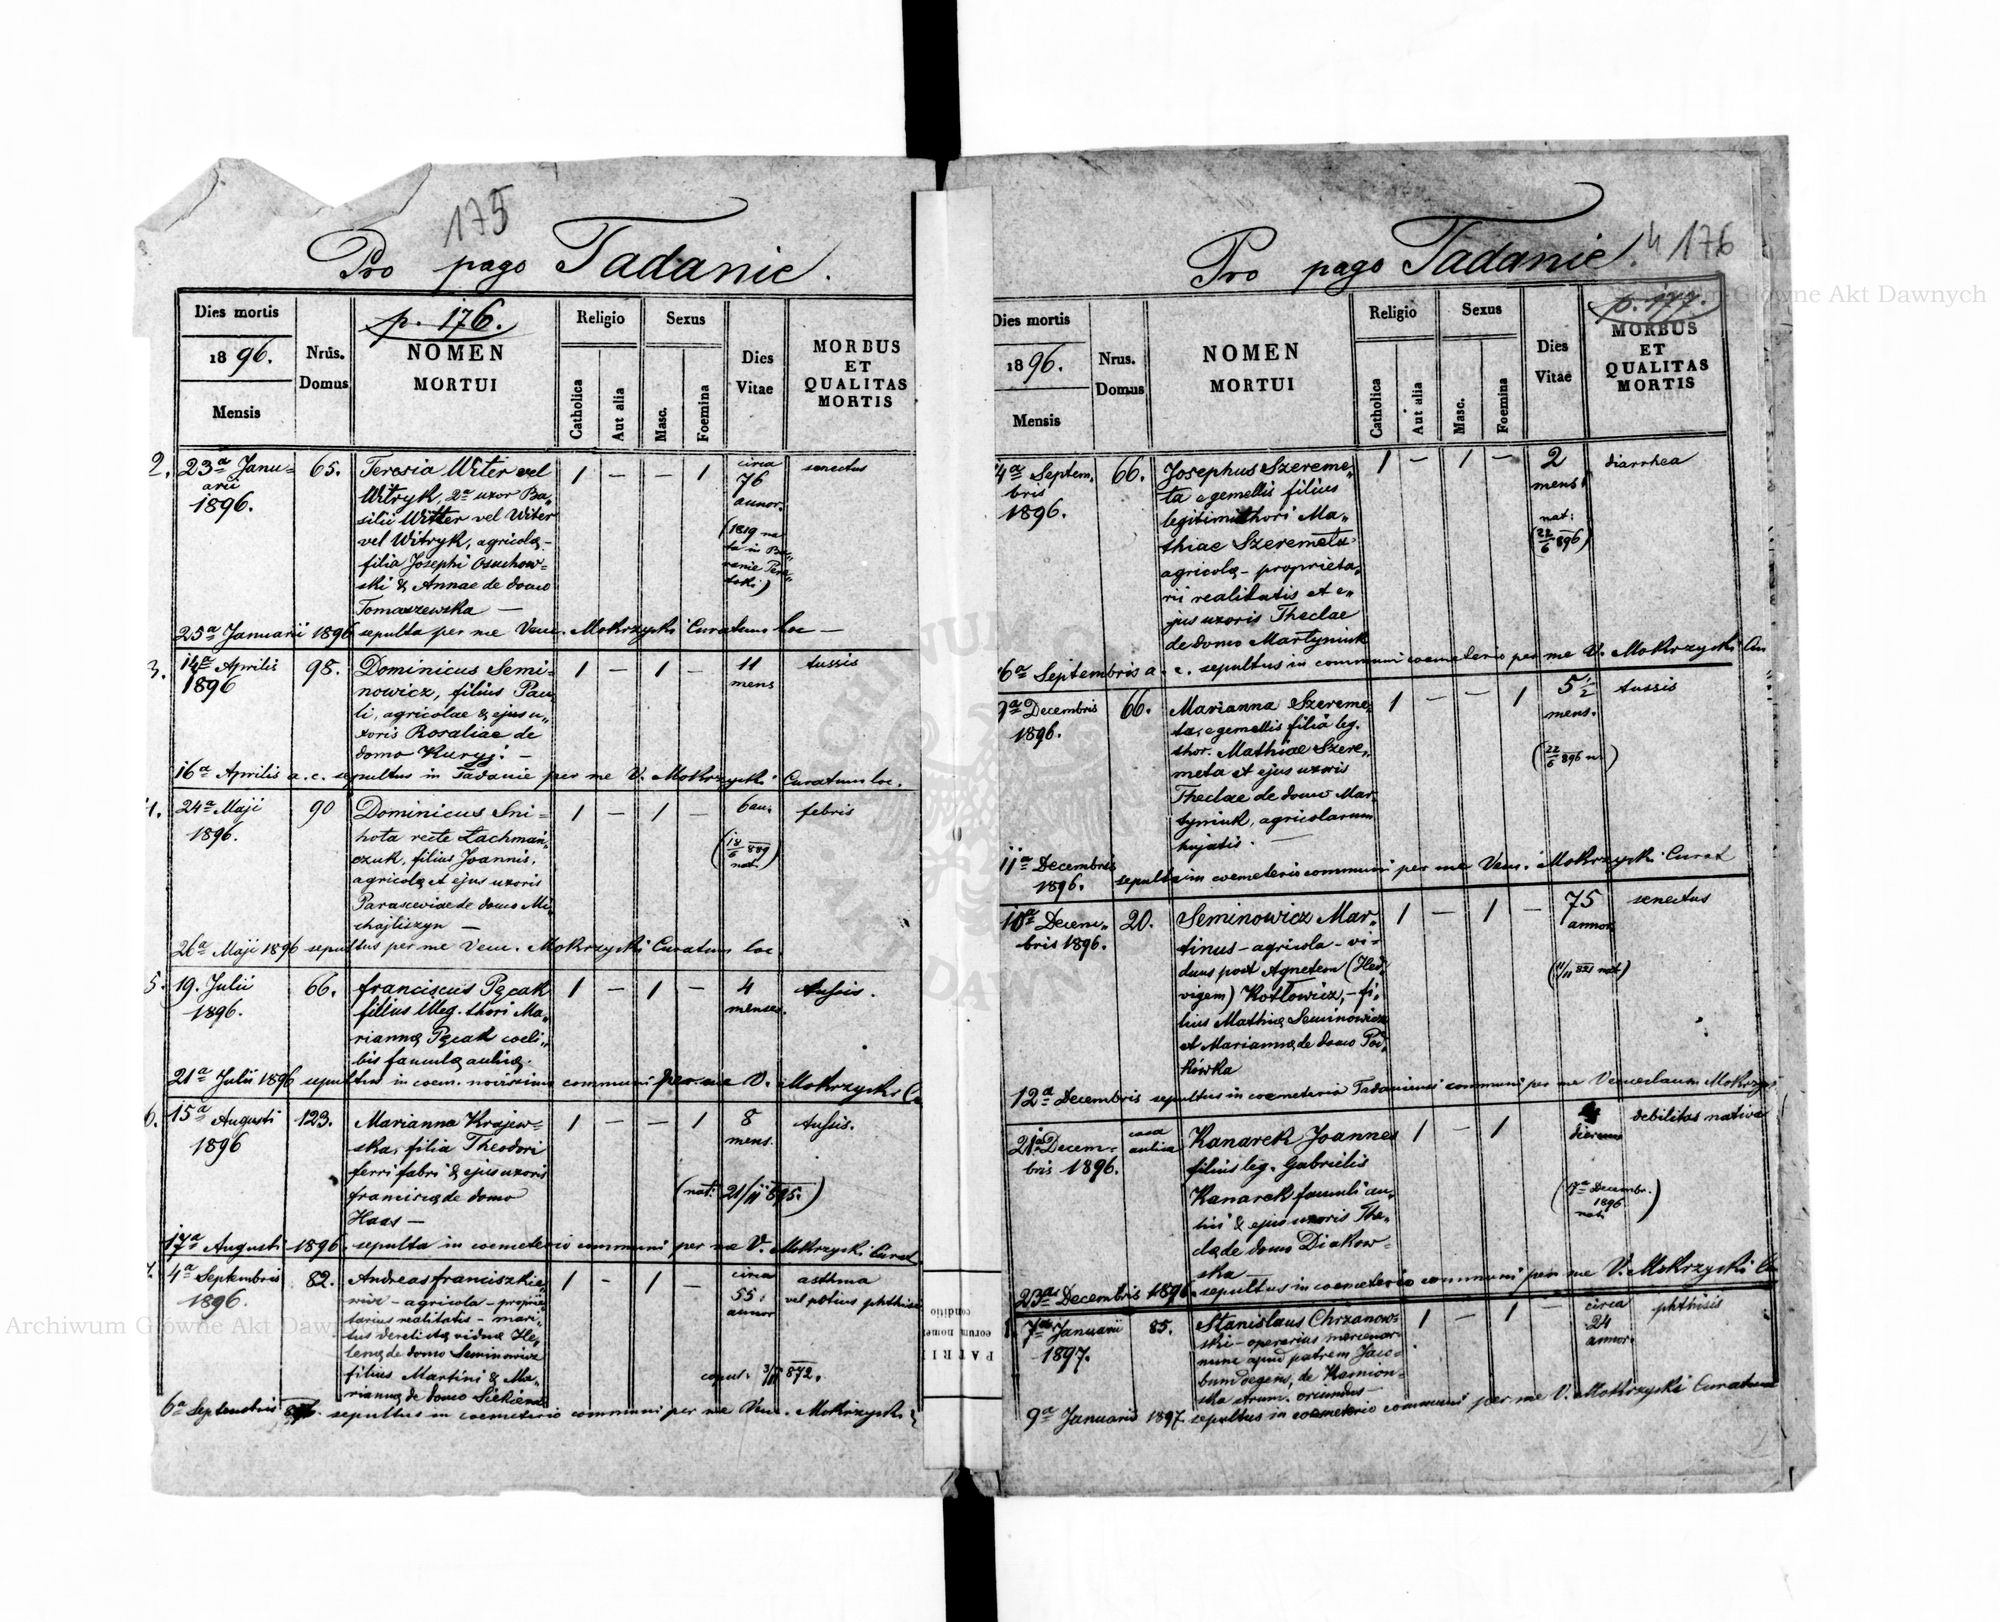 175
Pro pago Tadanie.
Dies mortis
1896.
Mensis
Nrus.
Domus
p. 176.
NOMEN
MORTUI
Religio
Catholica
Aut alia
Sexus
Masc.
Foemina
Dies
Vitae
MORBUS
ET
QUALITAS
MORTIS
2. 23a Janu=
arii
1896.
65.
Teresia Witer vel
Witryk, 2a uxor Ba„
silii Witter vel Witer
vel Witryk, agricolę –
filia Josephi Osuchow–
ski & Annae de domo
Tomaszewska —
1 – – 1
circa
76
annor.
(1819 na
ta in
senectus
25a Januarii 1896 sepulta per me Venc. Mokrzycki Curatum loc —
3. 14a Aprilis
1896
98.
Dominicus Semi=
nowicz, filius Pau
li, agricolae & ejus u„
xoris Rosaliae de
domo Kuryj. —
1 – 1 –
11
mens
tussis
16a Aprilis a. c. sepultus in Tadanie per me V. Mokrzycki Curatum loc.
4. 24a Maji
1896.
90
Dominicus Sni=
hota recte Łachmań„
czuk, filius Joannis,
agricolę et ejus uxoris
Parasceviae de domo Mi„
chajliszyn —
1 – 1 –
6 an.
(18/6 889
nat.)
febris
26a Maji 1896 sepultus per me Venc. Mokrzycki Curatum loc.
5. 19. Julii
1896.
66.
Franciscus Pęcak
filius illeg. thori Ma„
riannę Pęcak coeli„
bis famulę aulicę.
1 – 1 –
4
menses.
tussis.
21a Julii 1896 sepultus in coem. novissimo communi per me V. Mokrzycki Cu
6. 15a Augusti
1896
123.
Marianna Krajew–
ska, filia Theodori
ferri fabri & ejus uxoris
Franciscę de domo
Haas —
1 – – 1
8
mens.
(nat: 21/11 895.)
tussis.
17a Augusti 1896. sepulta in coemeterio communi per me V. Mokrzycki Curat
7. 4a Septembris
1896.
82.
Andreas Franciszkie„
wicz – agricola – proprie„
tarius realitatis – mari„
tus derelictę viduę He„
lenę de domo Seminowicz
filius Martini & Ma„
riannę de domo
1 – 1 –
circa
55.
annor
copul. 3/11 872.
asthma
vel potius phthisis
6a Septembris sepultus in coemeterio communi per me Venc. Mokrzycki
4 176
Pro pago Tadanie.
Dies mortis
1896.
Mensis
Nrus.
Domus
NOMEN
MORTUI
Religio
Catholica
Aut alia
Sexus
Masc.
Foemina
Dies
Vitae
p. 177.
MORBUS
ET
QUALITAS
MORTIS
4a Septem„
bris
1896.
66.
Josephus Szereme„
ta e gemellis filius
legitimi thori Ma„
thiae Szeremeta
agricolę – proprieta„
rii realitatis et e„
jus uxoris Theclae
de domo Martyniuk
1 – 1 –
2
mens.
nat:
(22/6 896)
diarrhea
6a Septembris a. c. sepultus in communi coemeterio per me V. Mokrzycki Cu
9a Decembris
1896.
66.
Marianna Szereme„
ta, e gemellis filia leg.
thor. Mathiae Szere„
meta et ejus uxoris
Theclae de domo Mar„
tyniuk, agricolarum
hujatis. —
1 – – 1
5 1/2
mens.
(22/6 896 n.)
tussis
11a Decembris
1896. sepulta in coemeterio communi per me Venc. Mokrzycki Curat
10a Decem„
bris 1896.
20.
Seminowicz Mar„
tinus – agricola – vi–
duus post Agnetem (Hed„
vigem) Kotłowicz, – fi„
lius Mathię Seminowicz
et Mariannę de domo
1 – 1 –
75
annor.
(11/11 821 nat.)
senectus
12a Decembris sepultus in coemeterio Tadaniensi communi per me Venceslaum Mokrzyc
21a Decem–
bris 1896.
casa
aulica
Kanarek Joannes
filius leg. Gabrielis
Kanarek famuli au„
lici & ejus uxoris The„
clę de domo Diakow–
ska —
1 – 1
4
dierum
(17a Decembr.
1896
nat.)
debilitas nativa
23a Decembris 1896. sepultus in coemeterio communi per me V. Mokrzycki Cu
7a Januarii
1897.
85.
Stanislaus Chrzanow–
ski – operarius mercenar.
nunc apud patrem Jaco–
bum degens, de Kamion–
ka strum. oriundus —
1 – 1 –
circa
24
annor.
phthisis
9a Januarii 1897. sepultus in coemeterio communi per me V. Mokrzycki Curatum
PATRI
eorum nomen
conditio
ARCHIWUM
AKT DAWNYCH
Archiwum Główne Akt Dawnych
Archiwum Główne Akt Dawnych